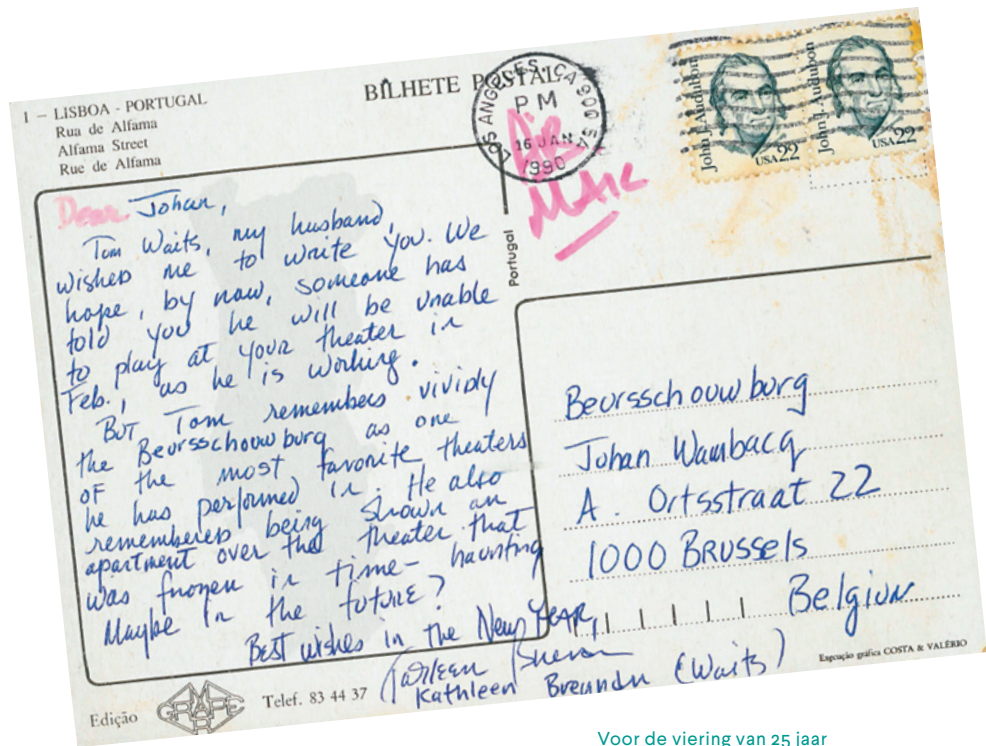 1 – LISBOA - PORTUGAL
Rua de Alfama
Alfama Street
Rue de Alfama
BILHETE POSTAL
LOS ANGELES, CA 900 54
PM
16 JAN
1990
AIR
MAIL
John J. Audubon
USA 22
John J. Audubon
USA 22
Portugal
Dear Johan,
Tom Waits, my husband,
wished me to write you. We
hope, by now, someone has
told you he will be unable
to play at your theater in
Feb., as he is working.
But Tom remembers vividly
the Beursschouwburg as one
of the most favorite theaters
he has performed in. He also
remembered being shown an
apartment over the theater that
was frozen in time – haunting
Maybe in the future?
Best wishes in the New Year,
Kathleen Brennan (Waits)
Beursschouwburg
Johan Wambacq
A. Ortsstraat 22
1000 Brussels
Belgium
Edição
GRAFE
MAR
Telef. 83 44 37
Execução gráfica COSTA & VALÉRIO
Voor de viering van 25 jaar